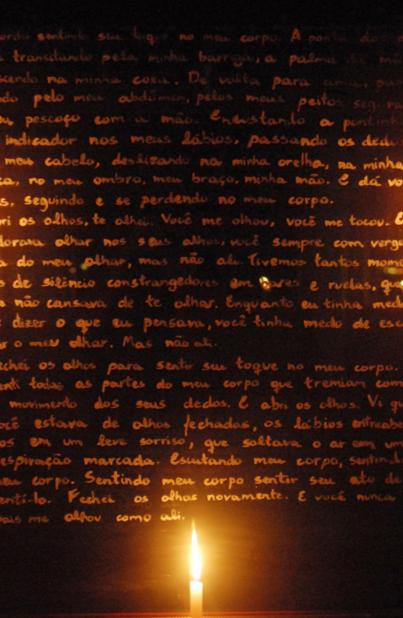 sentindo seu toque no meu corpo. A ponta dos
transitando pela minha barriga, a palma da
na minha coxa. De volta para cima,
pelo meu abdômen, pelos meus peitos
pescoço com a mão. Encostando a
indicador nos meus lábios, passando os
meu cabelo, deslizando na minha orelha, na minha
no meu ombro, meu braço, minha mão. E dá
seguindo e se perdendo no meu corpo.
os olhos, te olhei. Você me olhou, você me tocou.
olhar nos seus olhos, você sempre com
do meu olhar, mas não ali. Tivemos tantos
de silêncio constrangedores em bares e ruelas,
não cansava de te olhar. Enquanto eu tinha
dizer o que eu pensava, você tinha medo de
o meu olhar. Mas não ali.
os olhos para sentir seu toque no meu corpo.
todas as partes do meu corpo que tremiam com
movimento dos seus dedos. E abri os olhos. Vi
estava de olhos fechados, os lábios
em um leve sorriso, que soltava o ar em
respiração marcada. Escutando meu corpo,
corpo. Sentindo meu corpo sentir seu ato de
Fechei os olhos novamente. E você nunca
mais me olhou como ali.